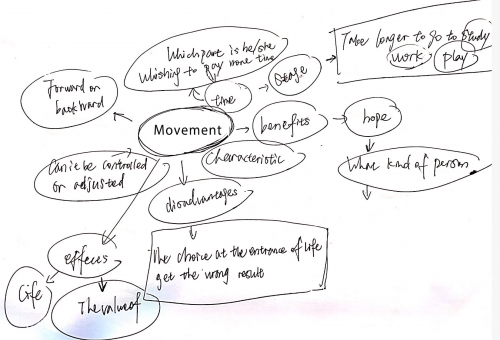 Which part is he/she
wishing to pay more time
Take longer to go to study
work play
time
stage
Forward or
backward
Movement
benefits
hope
characteristic
Can it be controlled
or adjusted
What kind of person
disadvantages
The choice at the entrance of life
get the wrong result
effects
Life
The value of